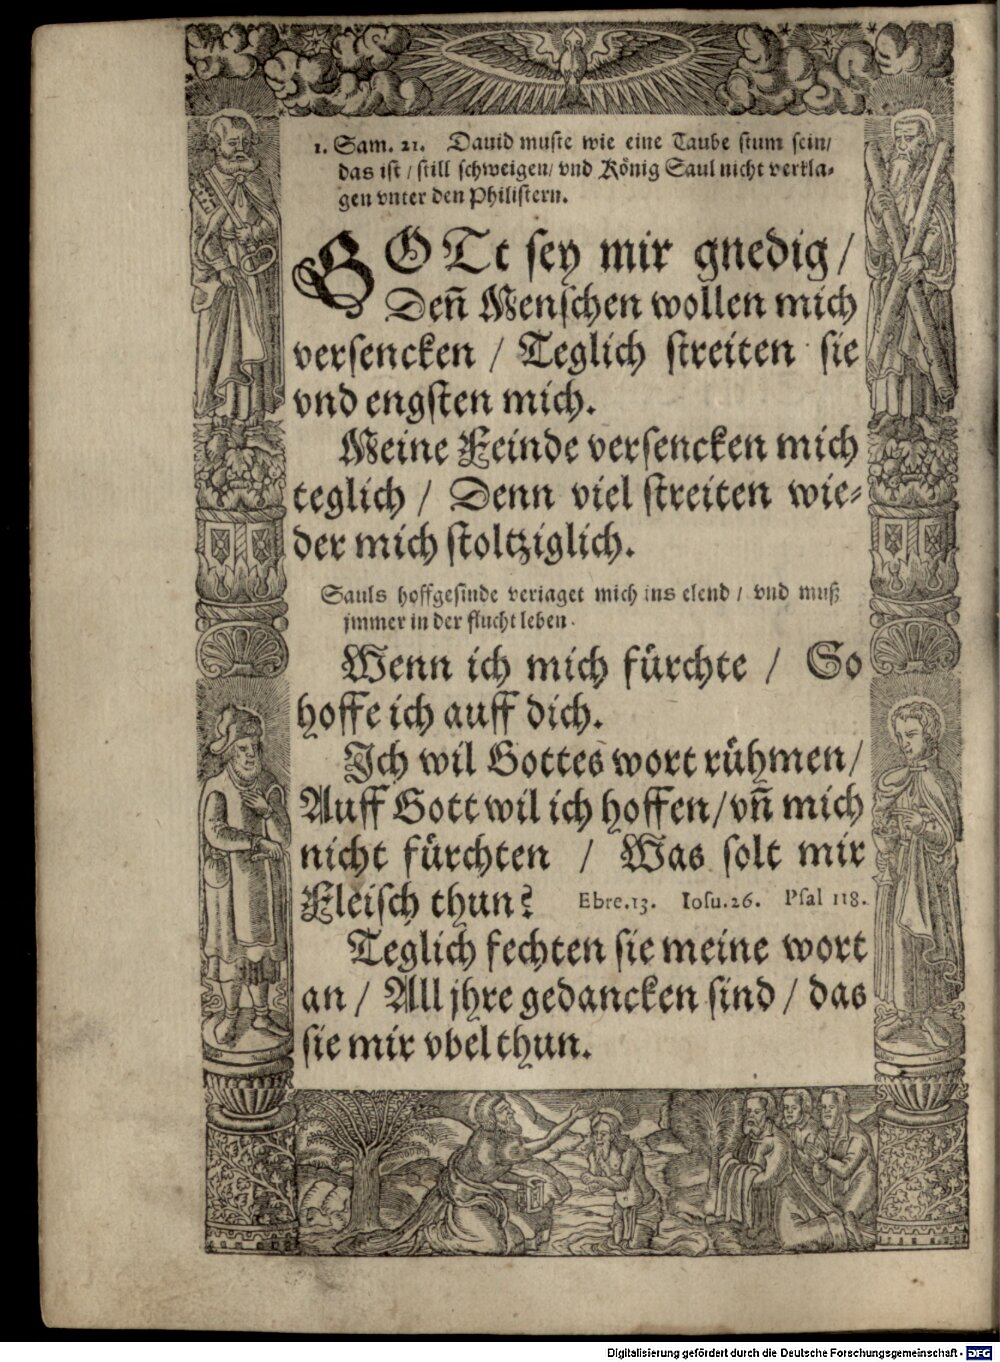 1. Sam. 21. Dauid muste wie eine Taube stum sein/
das ist / still schweigen/ vnd König Saul nicht verkla-
gen vnter den Philistern.
GOTt sey mir gnedig /
Deñ Menschen wollen mich
versencken / Teglich streiten sie
vnd engsten mich.
Meine Feinde versencken mich
teglich / Denn viel streiten wie-
der mich stoltziglich.
Sauls hoffgesinde veriaget mich ins elend / vnd muß
jmmer in der flucht leben.
Wenn ich mich fürchte / So
hoffe ich auff dich.
Ich wil Gottes wort rühmen/
Auff Gott wil ich hoffen/ vñ mich
nicht fürchten / Was solt mir
Fleisch thun? Ebre.13. Iosu.26. Psal 118.
Teglich fechten sie meine wort
an / All jhre gedancken sind / das
sie mir vbel thun.
Digitalisierung gefördert durch die Deutsche Forschungsgemeinschaft - DFG